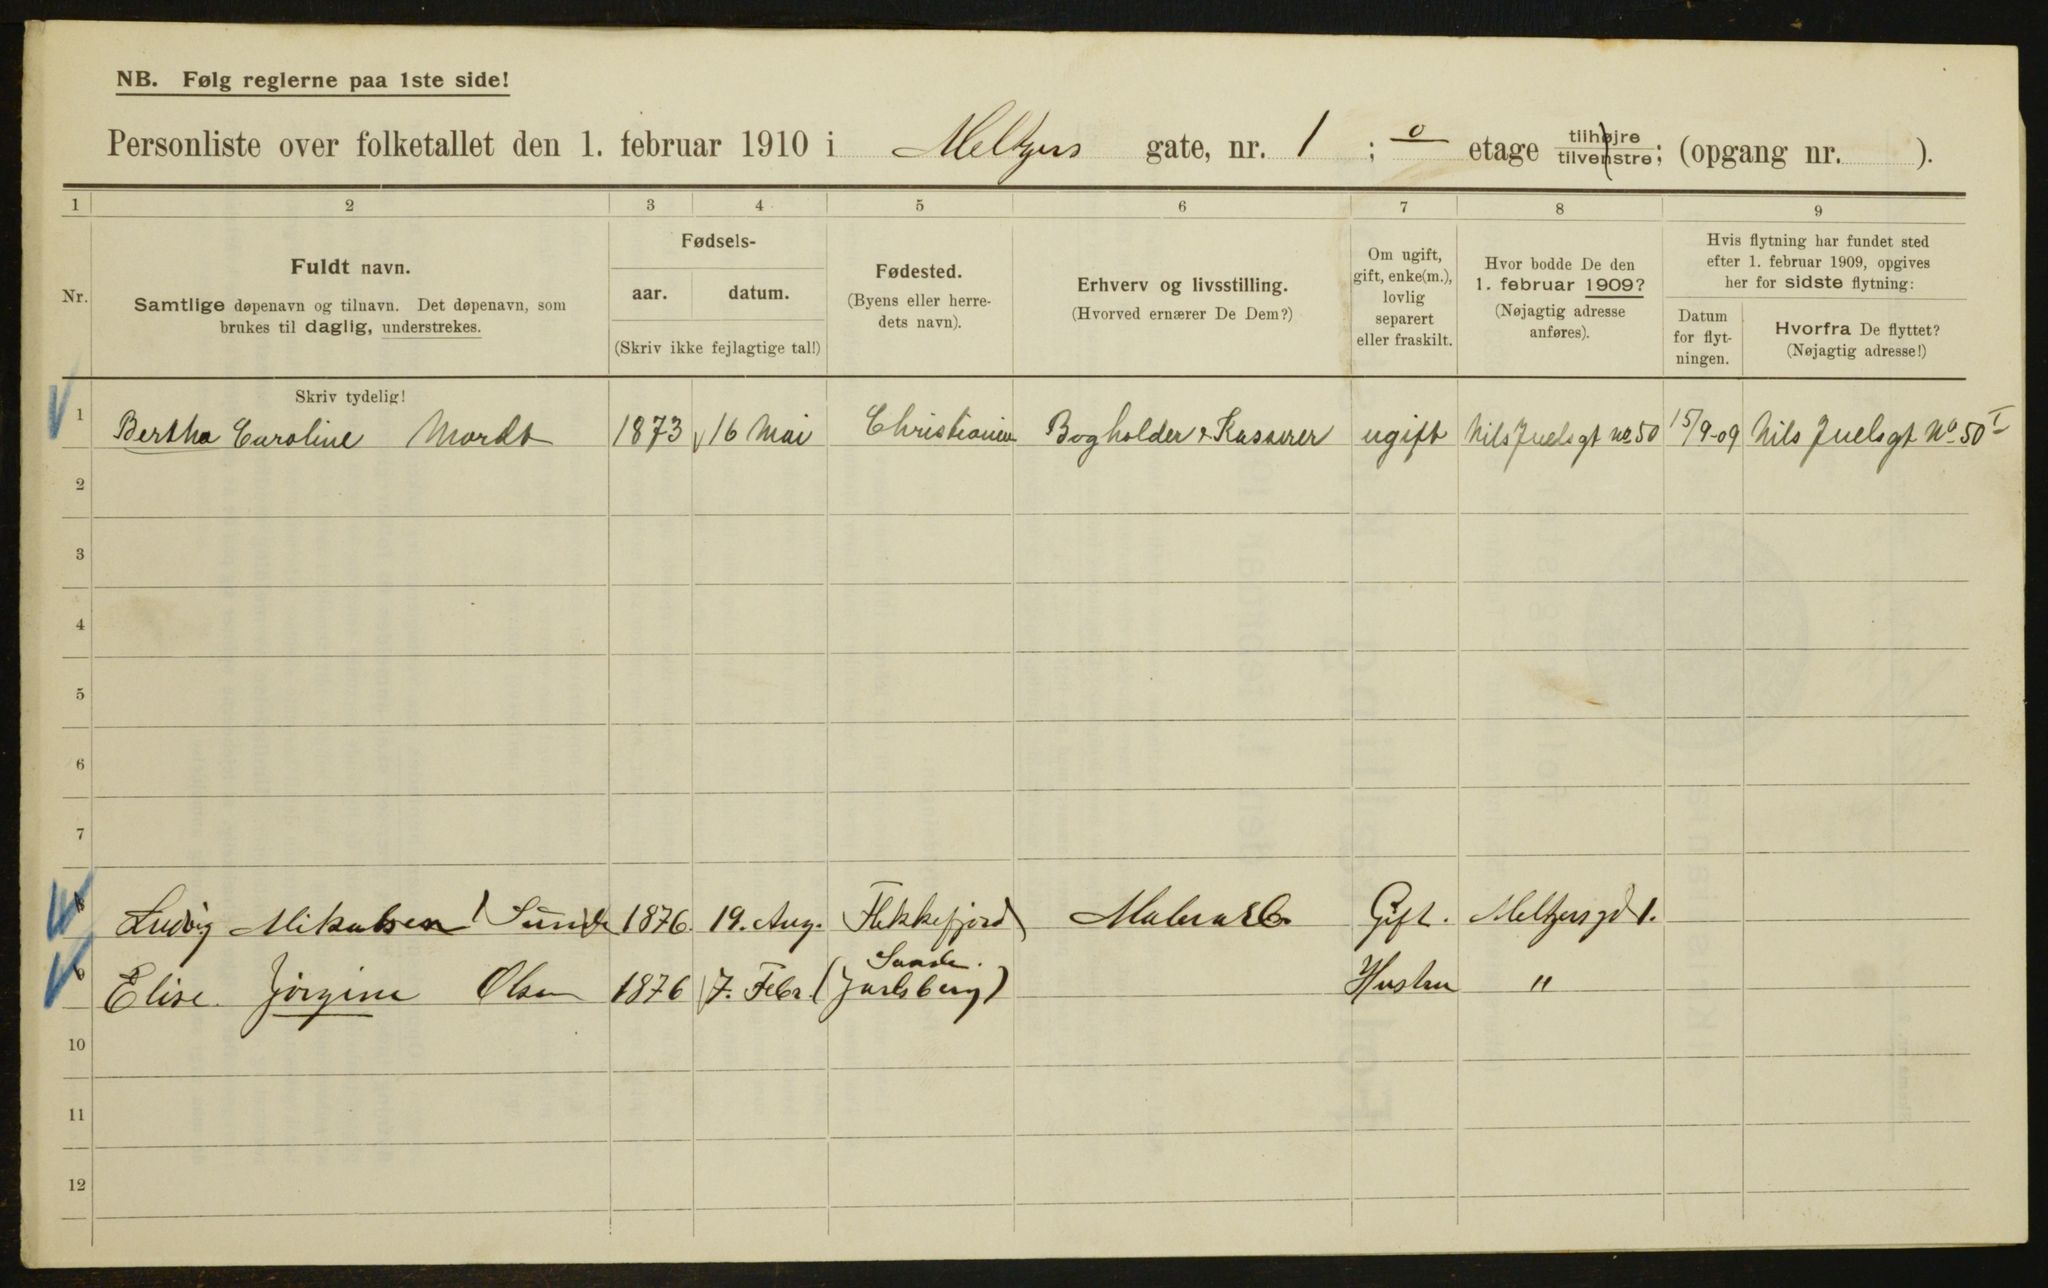 NB. Følg reglerne paa 1ste side!
Personliste over folketallet den 1. februar 1910 i Meltzers gate, nr. 1 ; 0 etage tilhøjre tilvenstre; (opgang nr. ).
1 2 3 4 5 6 7 8 9
Nr.
Fuldt navn.
Samtlige døpenavn og tilnavn. Det døpenavn, som
brukes til daglig, understrekes.
Fødsels-
aar. datum.
(Skriv ikke fejlagtige tal!)
Fødested.
(Byens eller herre-
dets navn).
Erhverv og livsstilling.
(Hvorved ernærer De Dem?)
Om ugift,
gift, enke(m.),
lovlig
separert
eller fraskilt.
Hvor bodde De den
1. februar 1909?
(Nøjagtig adresse
anføres).
Hvis flytning har fundet sted
efter 1. februar 1909, opgives
her for sidste flytning:
Datum
for flyt-
ningen.
Hvorfra De flyttet?
(Nøjagtig adresse!)
Skriv tydelig!
1 Bertha Caroline Mordt 1873 16 Mai Christiania Bogholder & Kasserer ugift Nils Juelsgt no 50 15/9-09 Nils Juelsgt No 50 I
2
3
4
5
6
7
8 Ludvig Mikalsen Sunde 1876. 19. Aug. Flekkefjord Gift. Meltzersgd 1.
9 Elise Jörgine Olsen 1876 7. Febr. Sande. (Jarlsberg) Hustru "
10
11
12